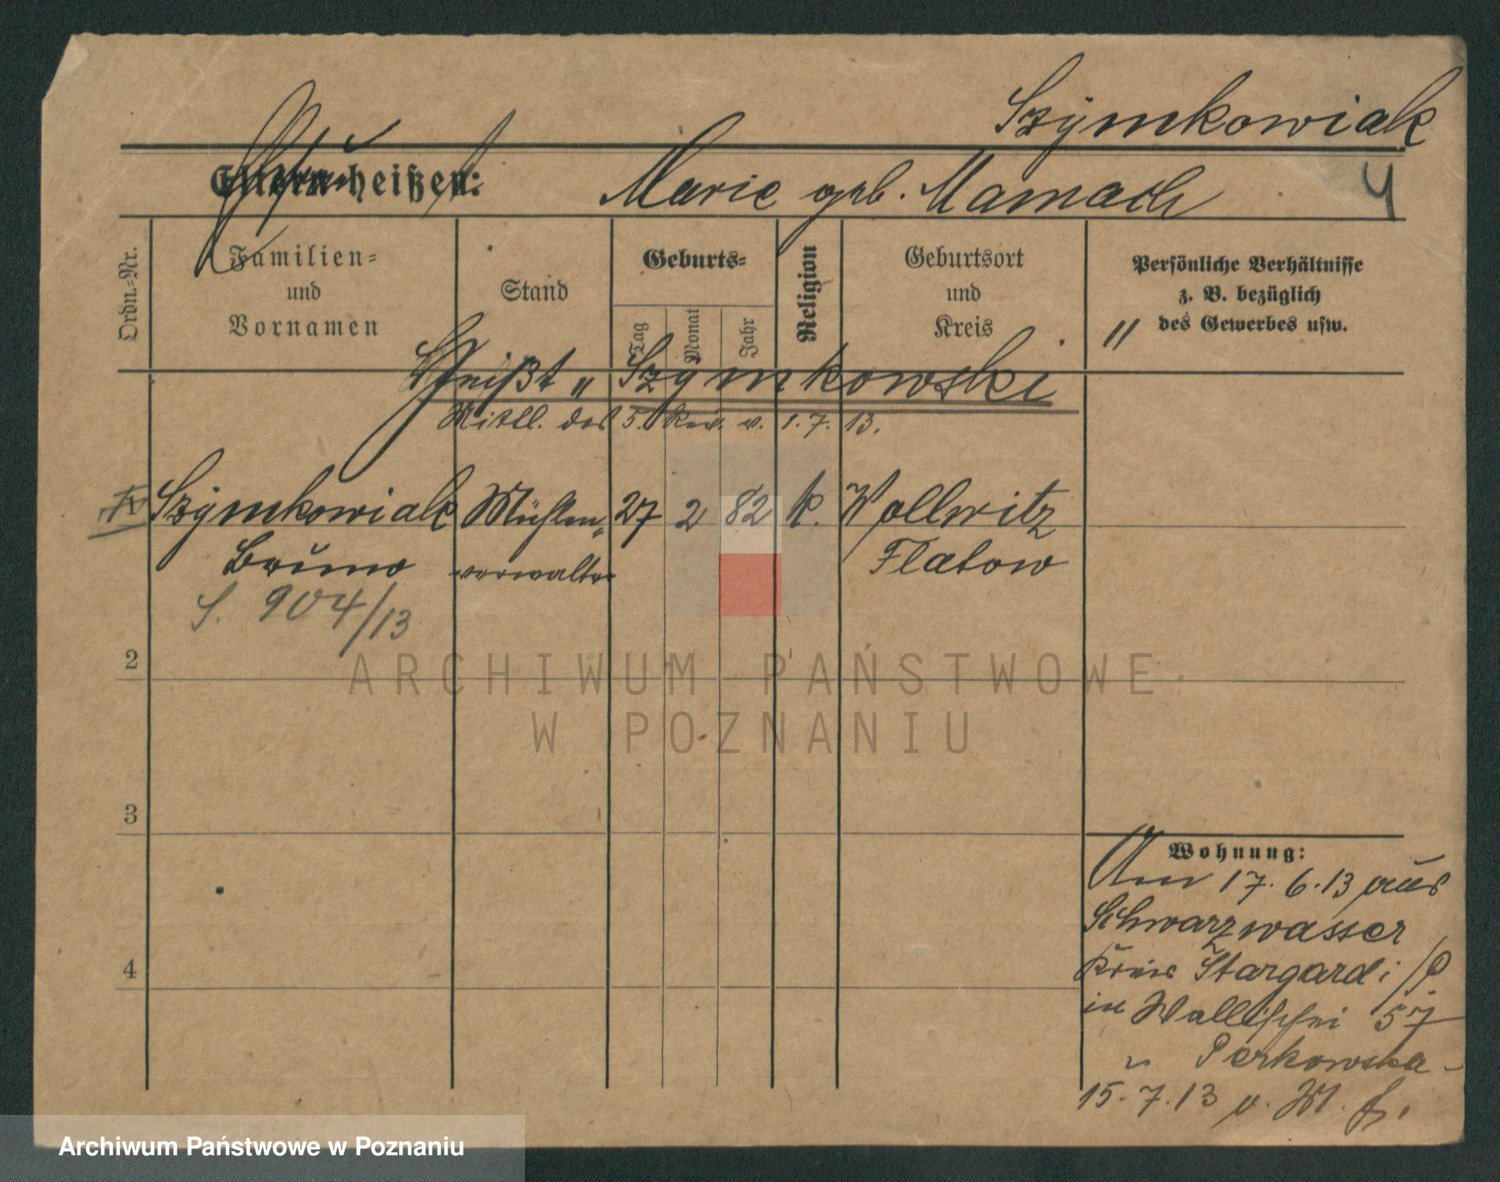 Szymkowiak
Eltern heißen: Marie geb. Mamach 4
Ordn.-Nr.
Familien-
und
Vornamen
Stand
Geburts-
Tag
Monat
Jahr
Religion
Geburtsort
und
Kreis
Persönliche Verhältnisse
z. B. bezüglich
des Gewerbes usw.
Heißt „Szymkowski“
Mittl. des 5. Rev. v. 1.7.13.
Szymkowiak Mühlen- 27 2 82 k. Wollwitz
Bruno verwalter Flatow
S. 904/13
2
3
4
Wohnung:
Am 17.6.13 aus
Schwarzwasser
Kreis Stargard i/P
in Wallischei 57
Perkowska
15.7.13 v. M.
ARCHIWUM PAŃSTWOWE
W POZNANIU
Archiwum Państwowe w Poznaniu